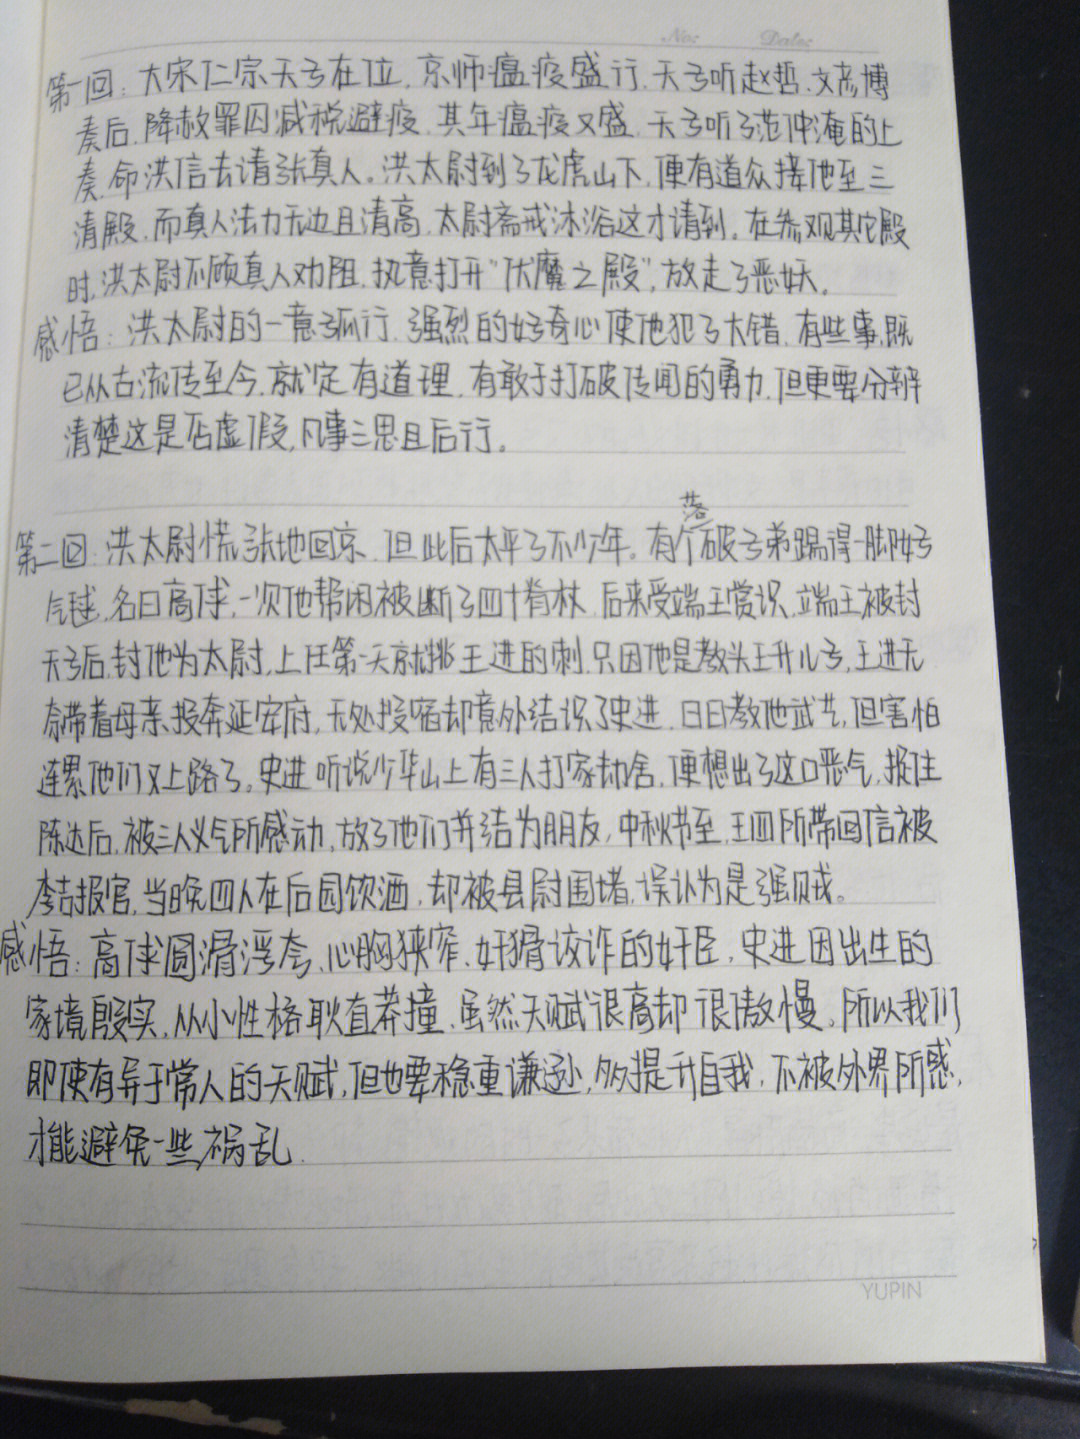 No:  Date:
第一回：大宋仁宗天子在位，京师瘟疫盛行，天子听赵哲、文彦博
奏后，降赦罪囚减税避疫，其年瘟疫又盛，天子听了范仲淹的上
奏，命洪信去请张真人。洪太尉到了龙虎山下，便有道众接他至三
清殿，而真人法力无边且清高，太尉斋戒沐浴这才请到。在参观其它殿
时，洪太尉不顾真人劝阻，执意打开“伏魔之殿”，放走了恶妖。
感悟：洪太尉的一意孤行，强烈的好奇心使他犯了大错，有些事，既
已从古流传至今，就定有道理，有敢于打破传闻的勇力，但更要分辨
清楚这是否虚假，凡事三思且后行。
第二回：洪太尉慌张地回京，但此后太平了不少年。有个破落子弟踢得一脚好
气毬，名曰高俅，一次他帮闲被断了四十脊杖，后来受端王赏识，端王被封
天子后，封他为太尉，上任第一天就挑王进的刺，只因他是教头王升儿子，王进无
奈带着母亲投奔延安府，无处投宿却意外结识了史进，日日教他武艺，但害怕
连累他们又上路了。史进听说少华山上有三人打家劫舍，便想出了这口恶气，捉住
陈达后，被三人义气所感动，放了他们并结为朋友，中秋节至，王四所带回信被
李吉报官，当晚四人在后园饮酒，却被县尉围堵，误认为是强贼。
感悟：高俅圆滑浮夸、心胸狭窄、奸猾诙诈的奸臣，史进因出生的
家境殷实，从小性格耿直莽撞，虽然天赋很高却很傲慢。所以我们
即使有异于常人的天赋，但也要稳重谦逊，多提升自我，不被外界所惑，
才能避免一些祸乱.
YUPIN